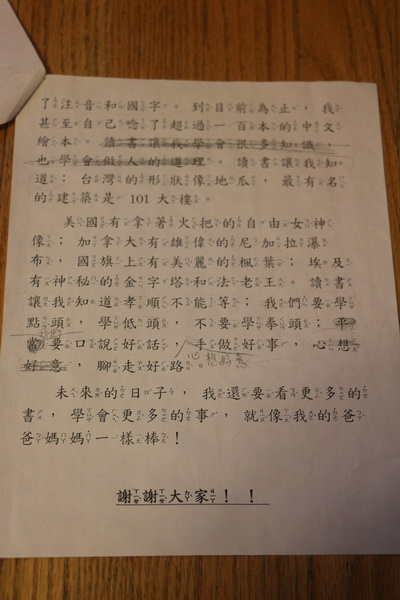 了注音和國字。到目前為止，我
甚至自己唸了超過一百本的中文
繪本。讀書讓我學會很多知識，
也學會做人的道理。讀書讓我知
道：台灣的形狀像地瓜，最有名
的建築是 101 大樓。
美國有拿著火把的自由女神
像；加拿大有雄偉的尼加拉瀑
布，國旗上有美麗的楓葉；埃及
有神秘的金字塔和法老王。讀書
讓我知道孝順不能等；我們要學
點頭，學低頭，不要學拳頭；平
當要口說好話，手做好事，心想
我們
好意，腳走好路。
心想好意
未來的日子，我還要看更多的
書，學會更多的事，就像我的爸
爸媽媽一樣棒！
謝謝大家！！